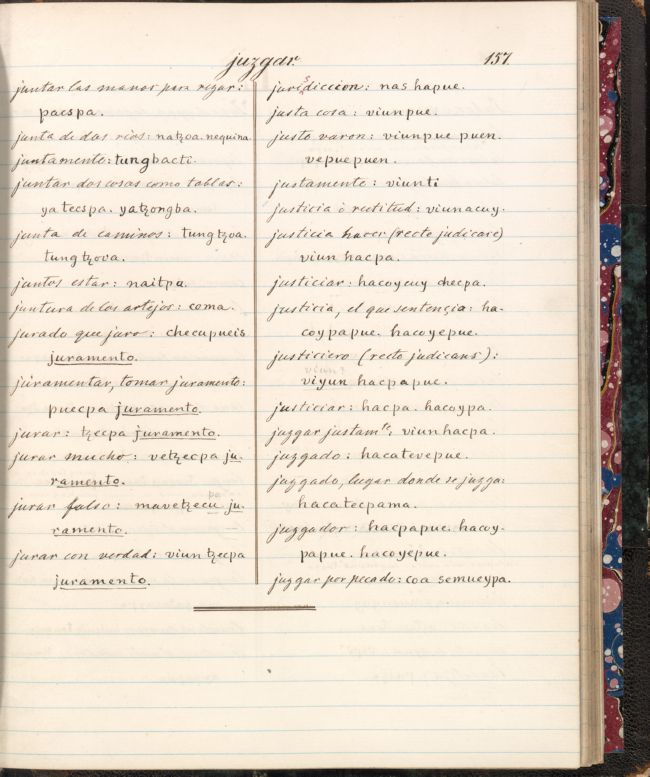 juzgar
157
juntar las manos para rezar:
pacspa.
junta de dos rios: natzoa. nequina
juntamente: tungbacti.
juntar dos cosas como tablas:
yatecspa. yatzongba.
junta de caminos: tungtzoa.
tungtzova.
juntos estar: naitpa.
juntura de los artejos: coma.
jurado que juro: checupueis
juramento.
juramentar, tomar juramento:
puecpa juramento.
jurar: tzecpa juramento.
jurar mucho: vetzecpa ju-
ramento.
jurar falso: mavetzecu ju-
ramento.
jurar con verdad: viun tzecpa
juramento.
jurisdiccion: nas hapue.
justa cosa: viunpue.
justo varon: viunpue puen.
vepuepuen.
justamente: viunti
justicia ò rectitud: viunacuy.
justicia hacer (recte judicare)
viun hacpa.
justiciar: hacoycuy checpa.
justicia, el que sentençia: ha-
coypapue. hacoyepue.
justiciero (recte judicans):
viyun hacpapue.
justiciar: hacpa. hacoypa.
juzgar justamte: viunhacpa.
juzgado: hacatevepue.
juzgado, lugar donde se juzga:
hacatecpama.
juzgador: hacpapue. hacoy-
papue. hacoyepue.
juzgar por pecado: coa semueypa.